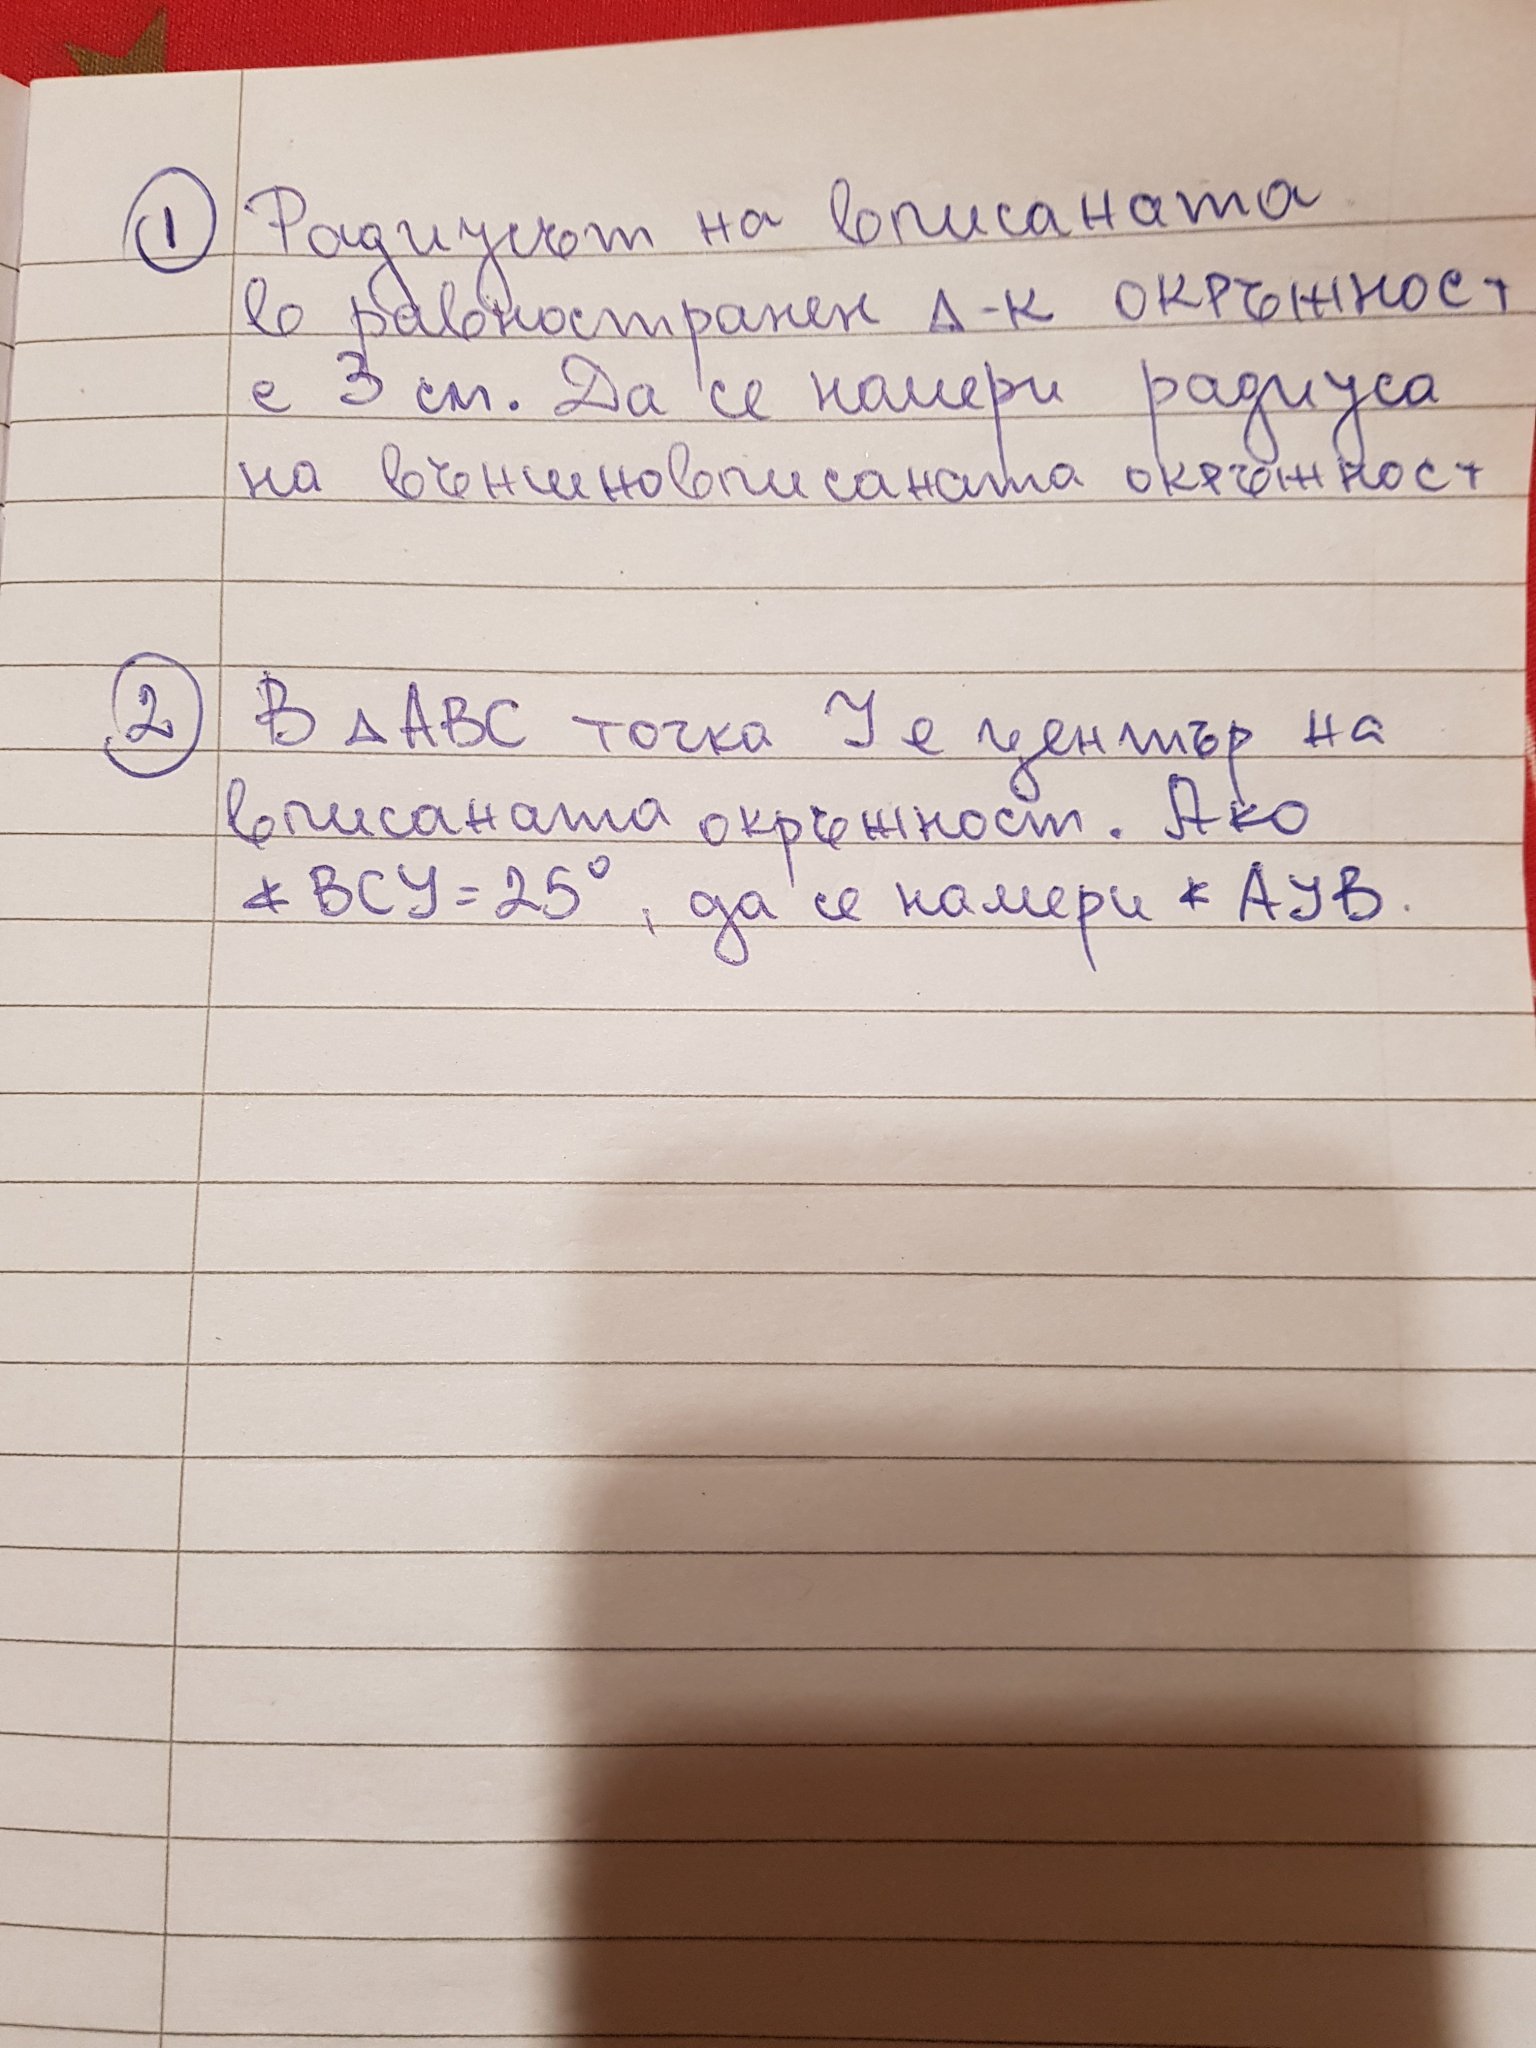 1 Радиусът на вписаната
в равностранен Δ-к окръжност
е 3 см. Да се намери радиуса
на външновписаната окръжност
2 В ΔАВС точка У е център на
вписаната окръжност. Ако
∢ВСУ=25°, да се намери ∢АУВ.